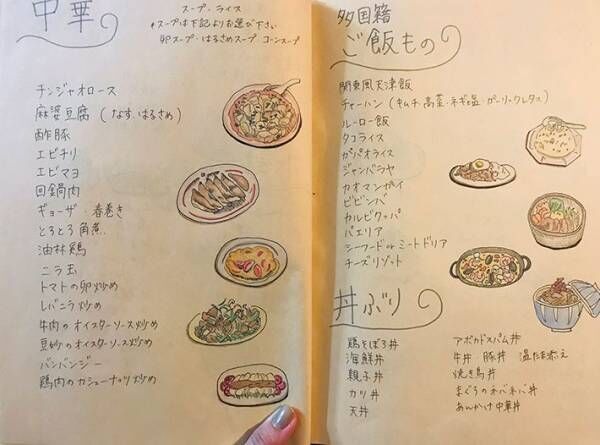 中華
スープ・ライス
*スープは下記よりお選び下さい
卵スープ・はるさめスープ コーンスープ
チンジャオロース
麻婆豆腐 (なす、はるさめ)
酢豚
エビチリ
エビマヨ
回鍋肉
ギョーザ・春巻き
とろとろ角煮
油林鶏
ニラ玉
トマトの卵炒め
レバニラ炒め
牛肉のオイスターソース炒め
豆妙のオイスターソース炒め
バンバンジー
鶏肉のカシューナッツ炒め
多国籍
ご飯もの
関東風天津飯
チャーハン (キムチ 高菜・ネギ塩・ガーリックレタス)
ルーロー飯
タコライス
ガパオライス
ジャンバラヤ
カオマンガイ
ビビンバ
カルビクッパ
パエリア
シーフードorミートドリア
チーズリゾット
丼ぶり
鶏そぼろ丼
海鮮丼
親子丼
カツ丼
天丼
アボカドスパム丼
牛丼 豚丼 温たま添え
焼き鳥丼
まぐろのネバネバ丼
あんかけ中華丼